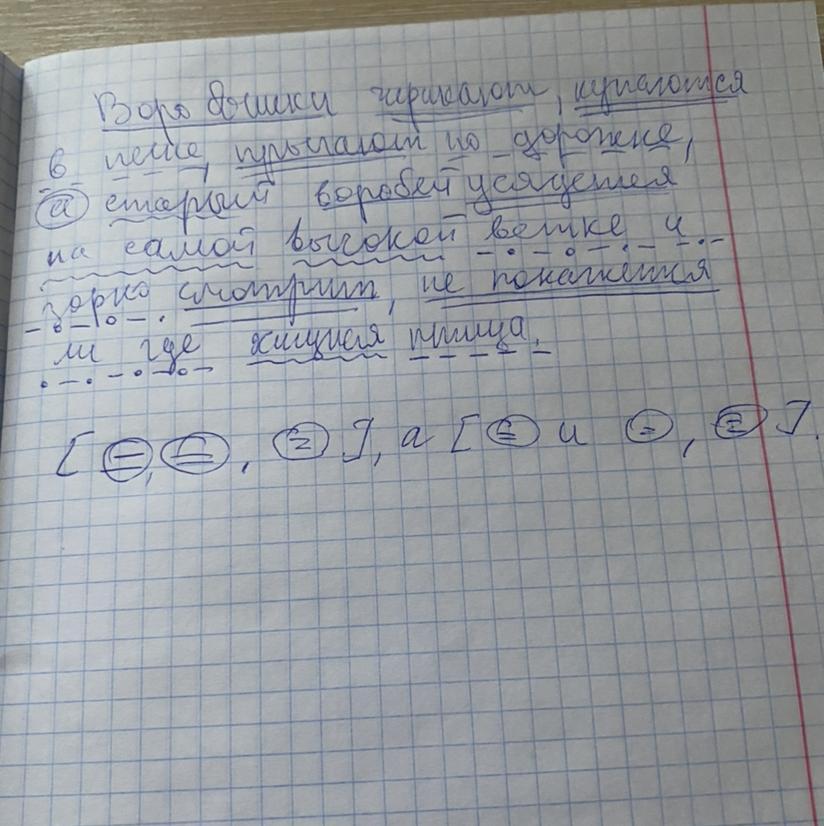 Воробышки чирикают, купаются
в песке, прыгают по дорожке,
а старый воробей усядется
на самой высокой ветке и
зорко смотрит, не покажется
ли где хищная птица.
[ =, =, = ], а [ = и =, = ].